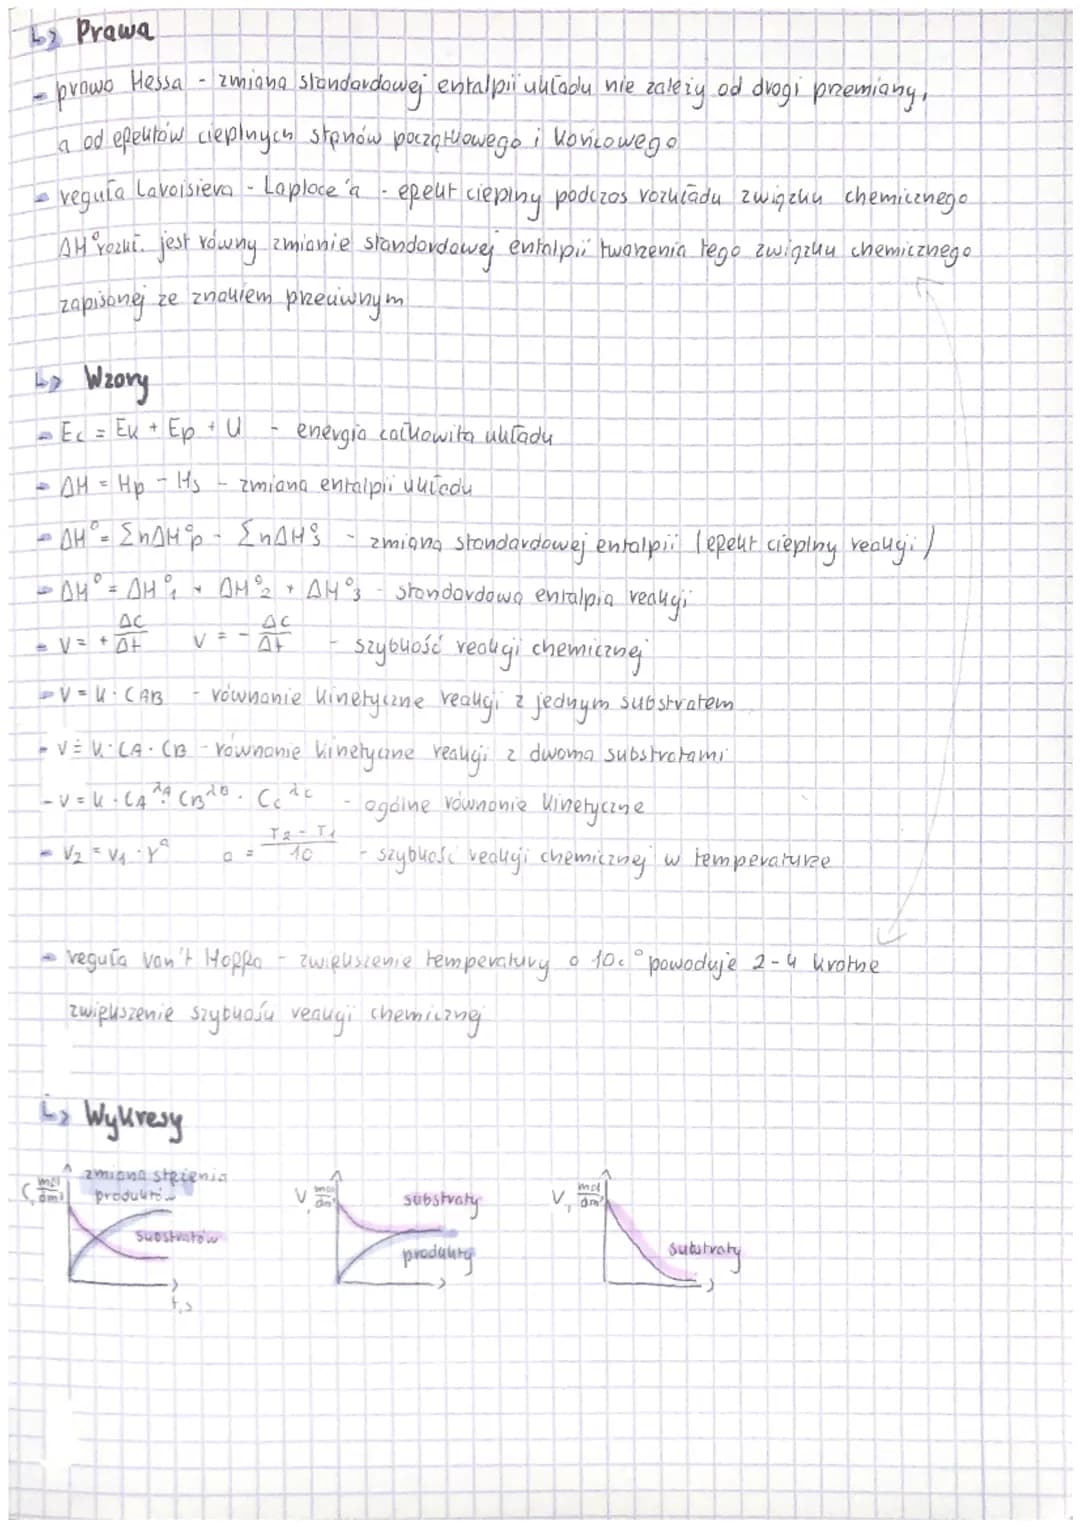 ↳ Prawa
- prawo Hessa - zmiana standardowej entalpii układu nie zależy od drogi przemiany,
a od efektów cieplnych stanów początkowego i końcowego
- reguła Lavoisiera - Laplace'a - efekt cieplny podczas rozkładu związku chemicznego
ΔH°rozkł. jest równy zmianie standardowej entalpii tworzenia tego związku chemicznego
zapisanej ze znakiem przeciwnym
↳ Wzory
- Ec = Ek + Ep + U - energia całkowita układu
- ΔH = Hp - Hs - zmiana entalpii układu
- ΔH° = ΣnΔH°p - ΣnΔH°s - zmiana standardowej entalpii (efekt cieplny reakcji)
- ΔH° = ΔH°1 + ΔH°2 + ΔH°3 - standardowa entalpia reakcji
- V = + ΔC/Δt V = - ΔC/Δt - szybkość reakcji chemicznej
- V = k · CAB - równanie kinetyczne reakcji z jednym substratem
- V = k · CA · CB - równanie kinetyczne reakcji z dwoma substratami
- V = k · CA^λA · CB^λB · Cc^λc - ogólne równanie kinetyczne
- V2 = V1 · γ^a a = T2 - T1/10 - szybkość reakcji chemicznej w temperaturze
- reguła van't Hoffa - zwiększenie temperatury o 10c° powoduje 2-4 krotne
zwiększenie szybkości reakcji chemicznej
↳ Wykresy
C, mol/dm³ zmiana stężenia
produktów
substratów
t,s
V, mol/dm³ substraty
produkty
V, mol/dm³
substraty